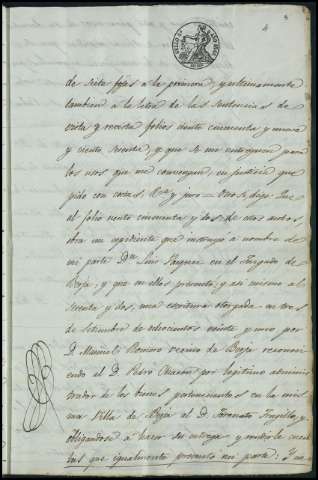 4
de siete fojas a la primera, y ultimamente
tambien a la letra de las Sentencias de
vista y revista folios ciento cincuenta y nueve
y ciento sesenta, y que se me entreguen para
los usos que me convengan, en justicia que
pido con costas, &a y juro = Otro si, digo: Que
al folio ciento cincuenta y dos de estos autos,
obra un espediente que instruyó a nombre de
mi parte Dn Luis en el Juzgado de
Berja, y que en ellos presentó, y asi mismo al
sesenta y dos, una escritura otorgada en tres
de Setiembre de ochocientos veinte y uno por
D. Manuel Romero vecino de Berja reconoci
endo al D. Pedro Chacon por legitimo adminis
trador de los bienes pertenecientes en la mis
ma Villa de Berja al D. Torcuato Trujillo, y
obligandose a hacer su entrega y rendirle cuen
tas que igualmente presentó mi parte: Y